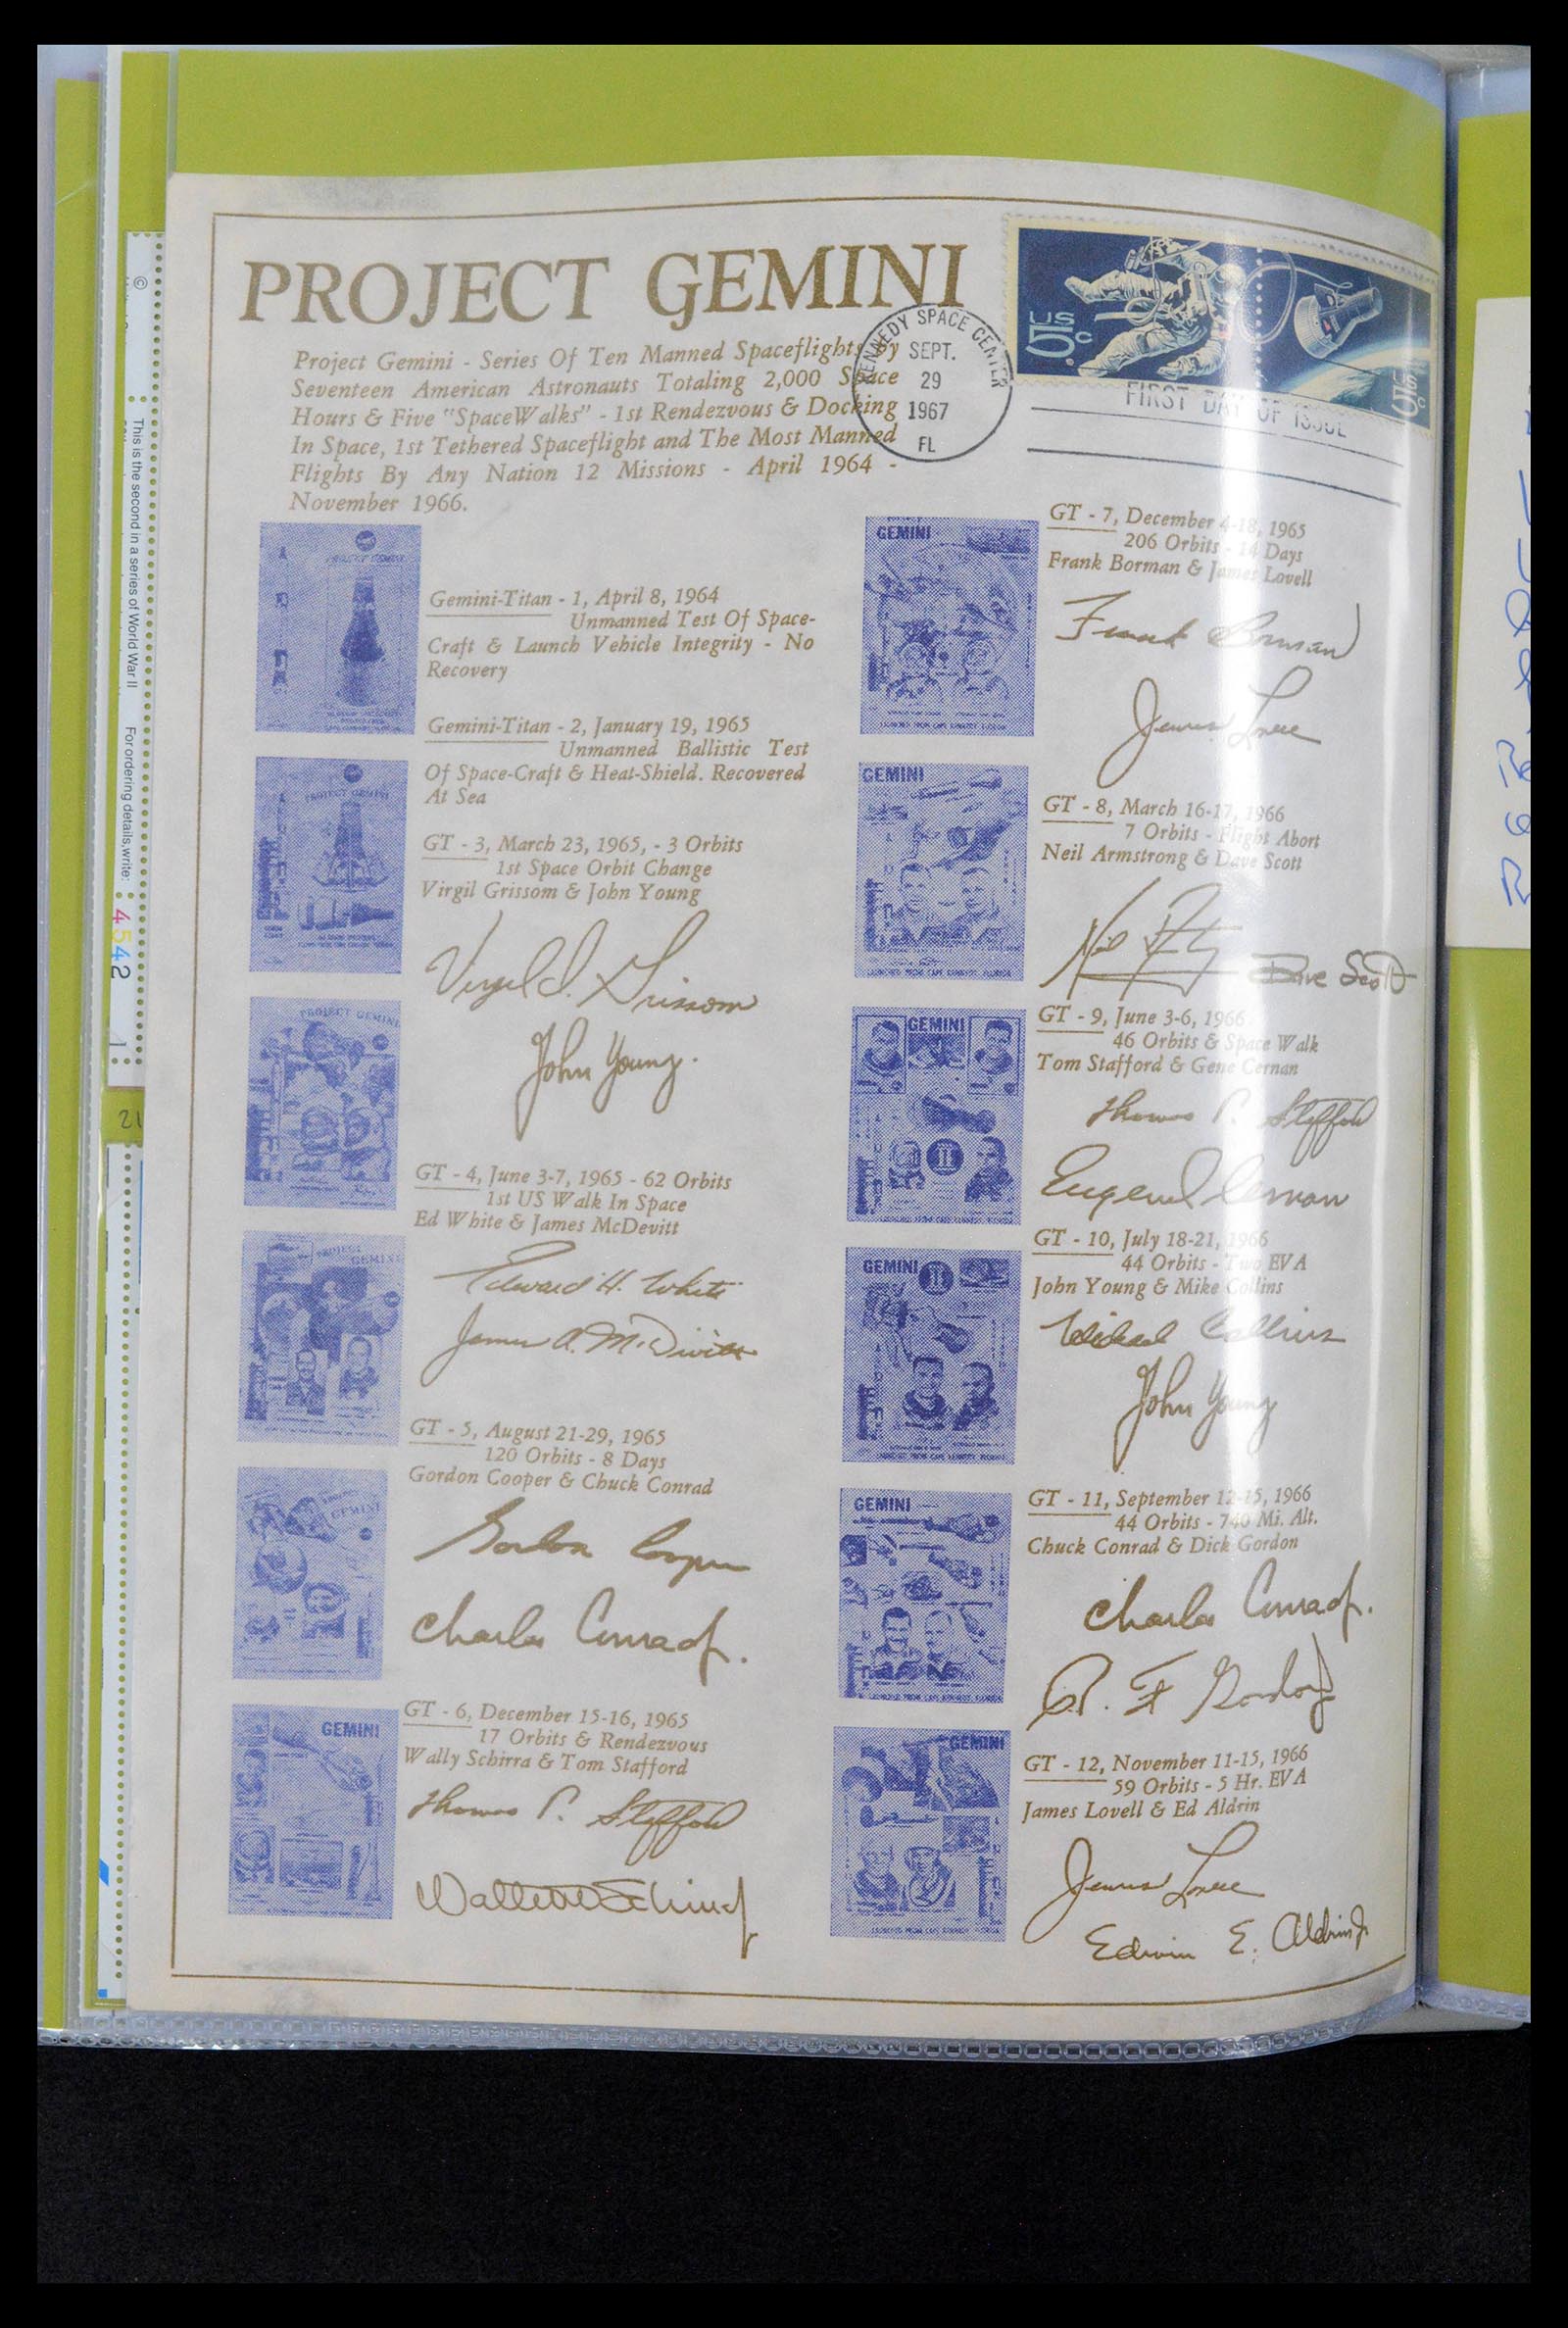 PROJECT GEMINI
Project Gemini - Series Of Ten Manned Spaceflights By
Seventeen American Astronauts Totaling 2,000 Space
Hours & Five "SpaceWalks" - 1st Rendezvous & Docking
In Space, 1st Tethered Spaceflight and The Most Manned
Flights By Any Nation 12 Missions - April 1964 -
November 1966.
KENNEDY SPACE CENTER
SEPT.
29
1967
FL
US
5c
FIRST DAY OF ISSUE
PROJECT GEMINI
Gemini-Titan - 1, April 8, 1964
Unmanned Test Of Space-
Craft & Launch Vehicle Integrity - No
Recovery
Gemini-Titan - 2, January 19, 1965
Unmanned Ballistic Test
Of Space-Craft & Heat-Shield. Recovered
At Sea
PROJECT GEMINI
GT - 3, March 23, 1965, - 3 Orbits
1st Space Orbit Change
Virgil Grissom & John Young
Virgil I. Grissom
John Young.
PROJECT GEMINI
GT - 4, June 3-7, 1965 - 62 Orbits
1st US Walk In Space
Ed White & James McDevitt
Edward H. White
James A. McDivitt
PROJECT
GEMINI
GT - 5, August 21-29, 1965
120 Orbits - 8 Days
Gordon Cooper & Chuck Conrad
Gordon Cooper
Charles Conrad Jr.
GEMINI
GT - 6, December 15-16, 1965
17 Orbits & Rendezvous
Wally Schirra & Tom Stafford
Thomas P. Stafford
Walter M Schirra Jr
GEMINI
GT - 7, December 4-18, 1965
206 Orbits - 14 Days
Frank Borman & James Lovell
Frank Borman
James Lovell
GEMINI
GT - 8, March 16-17, 1966
7 Orbits - Flight Abort
Neil Armstrong & Dave Scott
Neil Armstrong
Dave Scott
LAUNCHED FROM CAPE KENNEDY, FLORIDA
GEMINI
GT - 9, June 3-6, 1966
46 Orbits & Space Walk
Tom Stafford & Gene Cernan
Thomas P. Stafford
Eugene Cernan
GEMINI
II
GT - 10, July 18-21, 1966
44 Orbits - Two EVA
John Young & Mike Collins
Michael Collins
John Young
GEMINI
GT - 11, September 12-15, 1966
44 Orbits - 740 Mi. Alt.
Chuck Conrad & Dick Gordon
Charles Conrad Jr.
R. F. Gordon Jr
GEMINI
GT - 12, November 11-15, 1966
59 Orbits - 5 Hr. EVA
James Lovell & Ed Aldrin
James Lovell
Edwin E. Aldrin Jr
©
This is the second in a series of World War II
For ordering details, write:
4542
1
21